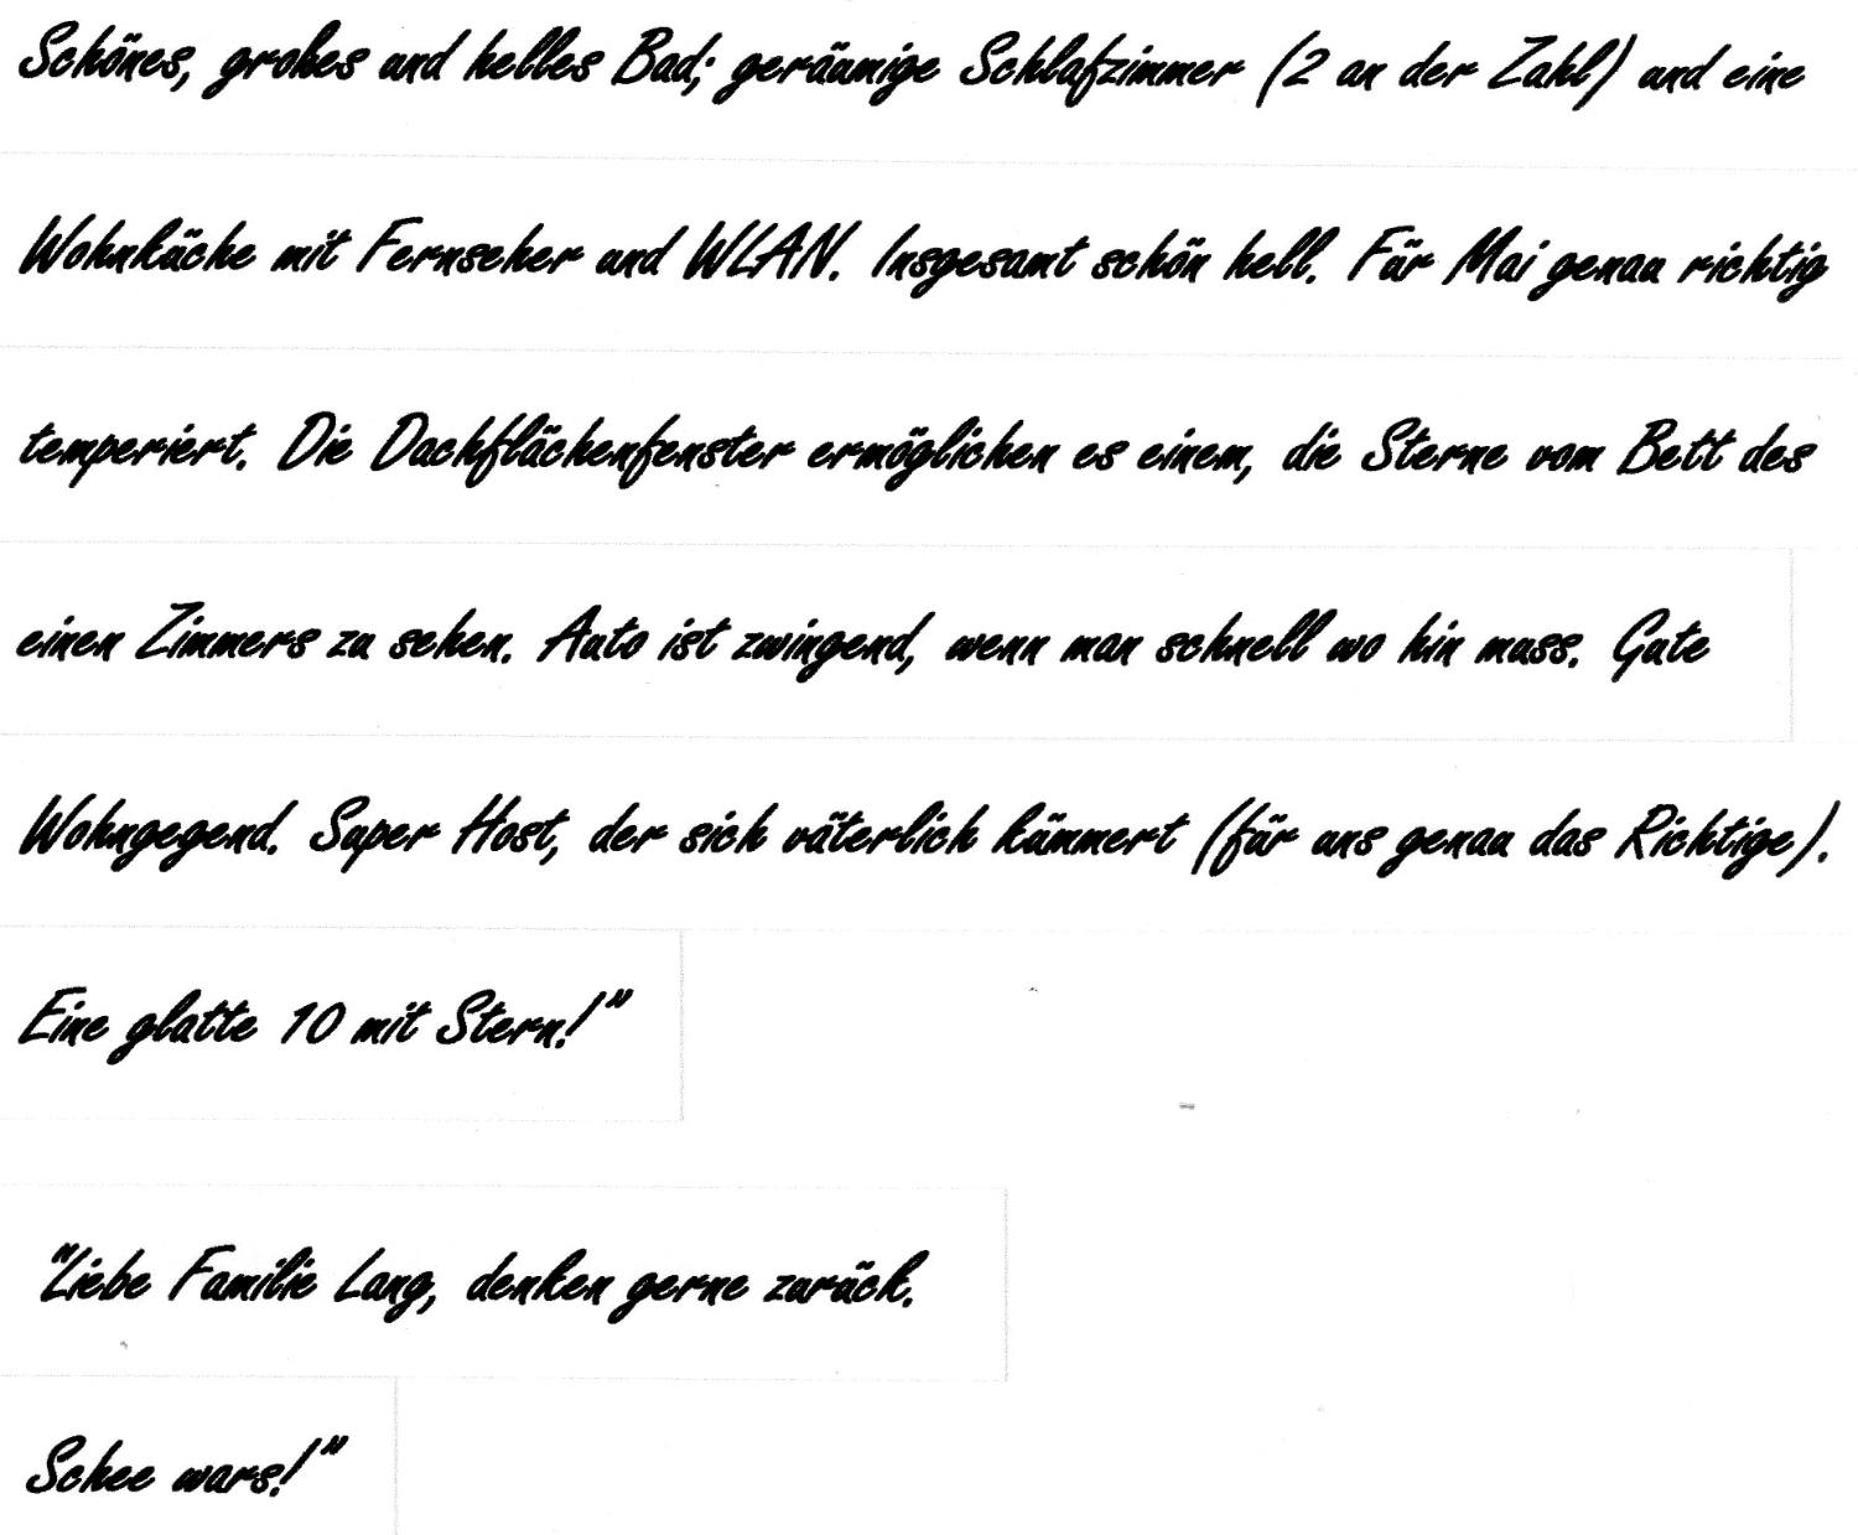 Schönes, großes und helles Bad; geräumige Schlafzimmer (2 an der Zahl) und eine
Wohnküche mit Fernseher und WLAN. Insgesamt schön hell. Für Mai genau richtig
temperiert. Die Dachflächenfenster ermöglichen es einem, die Sterne vom Bett des
einen Zimmers zu sehen. Auto ist zwingend, wenn man schnell wo hin muss. Gute
Wohngegend. Super Host, der sich väterlich kümmert (für uns genau das Richtige).
Eine glatte 10 mit Stern!"
"Liebe Familie Lang, denken gerne zurück.
Schee wars!"